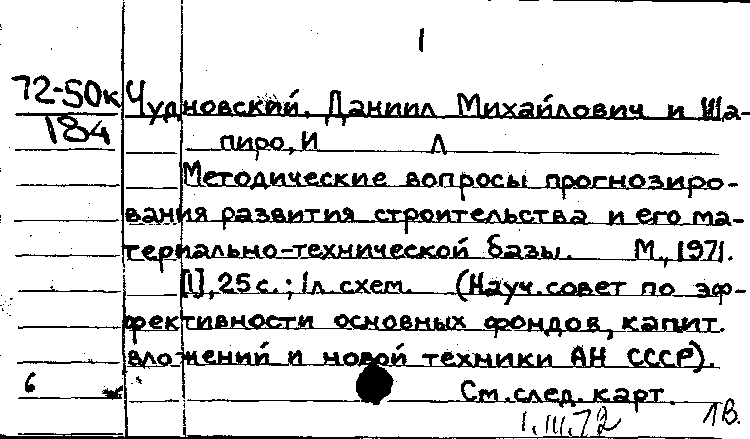 1
72-50к Чудновский, Даниил Михайлович и Ша-
184
пиро, И Л
Методические вопросы прогнозиро-
вания развития строительства и его ма-
териально-технической базы. М., 1971.
[1], 25 с.; 1л. схем. (Науч. совет по эф-
фективности основных фондов, капит.
вложений и новой техники АН СССР).
6
См. след. карт.
1.III.72 1В.